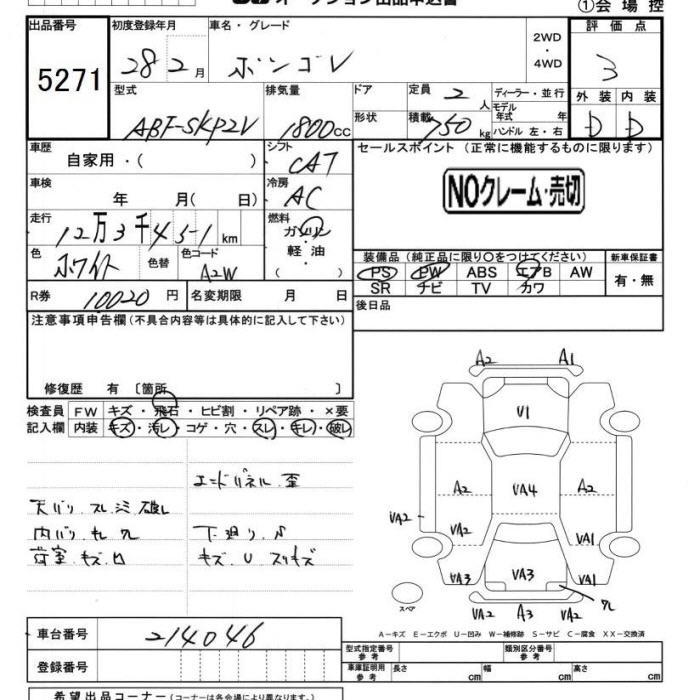 ①会場控
出品番号 初度登録年月 車名・グレード 2WD・4WD 評価点
5271 28 2月 ボンゴV 3
型式 排気量 ドア 定員 2人 ディーラー・並行 外装 内装
ABF-SKP2V 1800cc 形状 積載 750kg モデル年式 年 ハンドル 左・右 D D
車歴 シフト セールスポイント (正常に機能するものに限ります)
自家用・( ) CAT
車検 冷房 NOクレーム・売切
年 月( 日) AC
走行 燃料
12万3千451km ガソリン
色 色替 色コード 軽・油 装備品 (純正品に限り○をつけてください) 新車保証書
ホワイト A2W ( ) PS PW ABS エアB AW 有・無
SR ナビ TV カワ
R券 10020円 名変期限 月 日 後日品
注意事項申告欄 (不具合内容等は具体的に記入して下さい)
修復歴 有 〔箇所 〕
検査員 FW キズ・飛石・ヒビ割・リペア跡・×要
記入欄 内装 キズ・汚レ・コゲ・穴・スレ・キレ・破レ
エンドパネル 歪
天バリ スレ シミ 破レ
内バリ キレ ワレ 下廻リ S
荷室 キズ U キズ U スリキズ
A2 A1
V1
A2 VA4 A2
VA2 VA2 VA1
VA3 VA3 VA1
ワレ
スペア VA2 A3 VA2
A-キズ E-エクボ U-凹み W-補修跡 S-サビ C-腐食 XX-交換済
車台番号 214046
型式指定番号 参考 類別区分番号 参考
登録番号 車庫証明用 参考 長さ cm 幅 cm 高さ cm
希望出品コーナー (コーナーは各会場により異なります。)